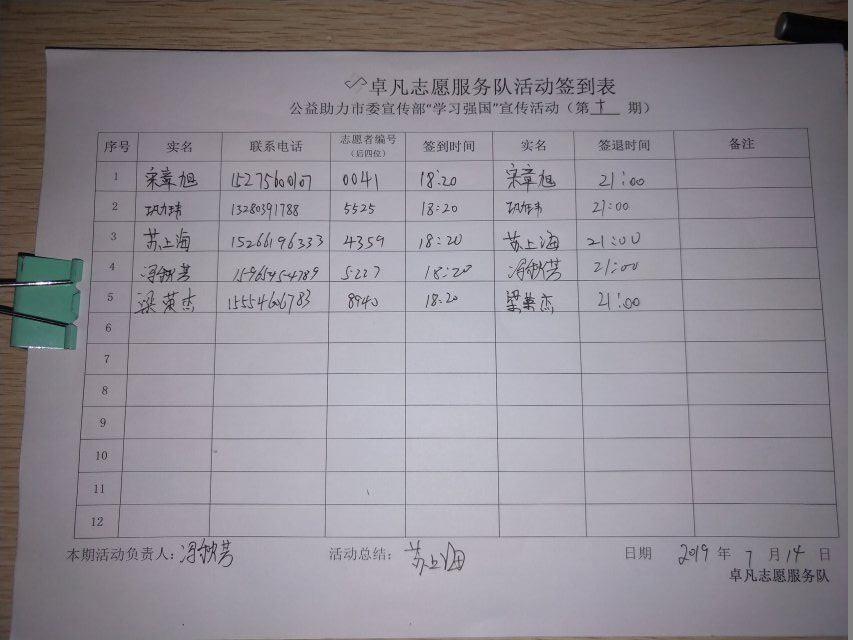 卓凡志愿服务队活动签到表
公益助力市委宣传部“学习强国”宣传活动（第十期）
序号 实名 联系电话 志愿者编号（后四位） 签到时间 实名 签退时间 备注
1 宋章旭 15275600107 0041 18:20 宋章旭 21:00
2 13280391788 5525 18:20 21:00
3 苏上海 15266196333 4359 18:20 苏上海 21:00
4 冯秋芳 15965454789 5227 18:20 冯秋芳 21:00
5 梁荣杰 15554606783 8940 18:20 梁荣杰 21:00
6
7
8
9
10
11
12
本期活动负责人：冯秋芳 活动总结：苏上海 日期 2019 年 7 月 14 日
卓凡志愿服务队